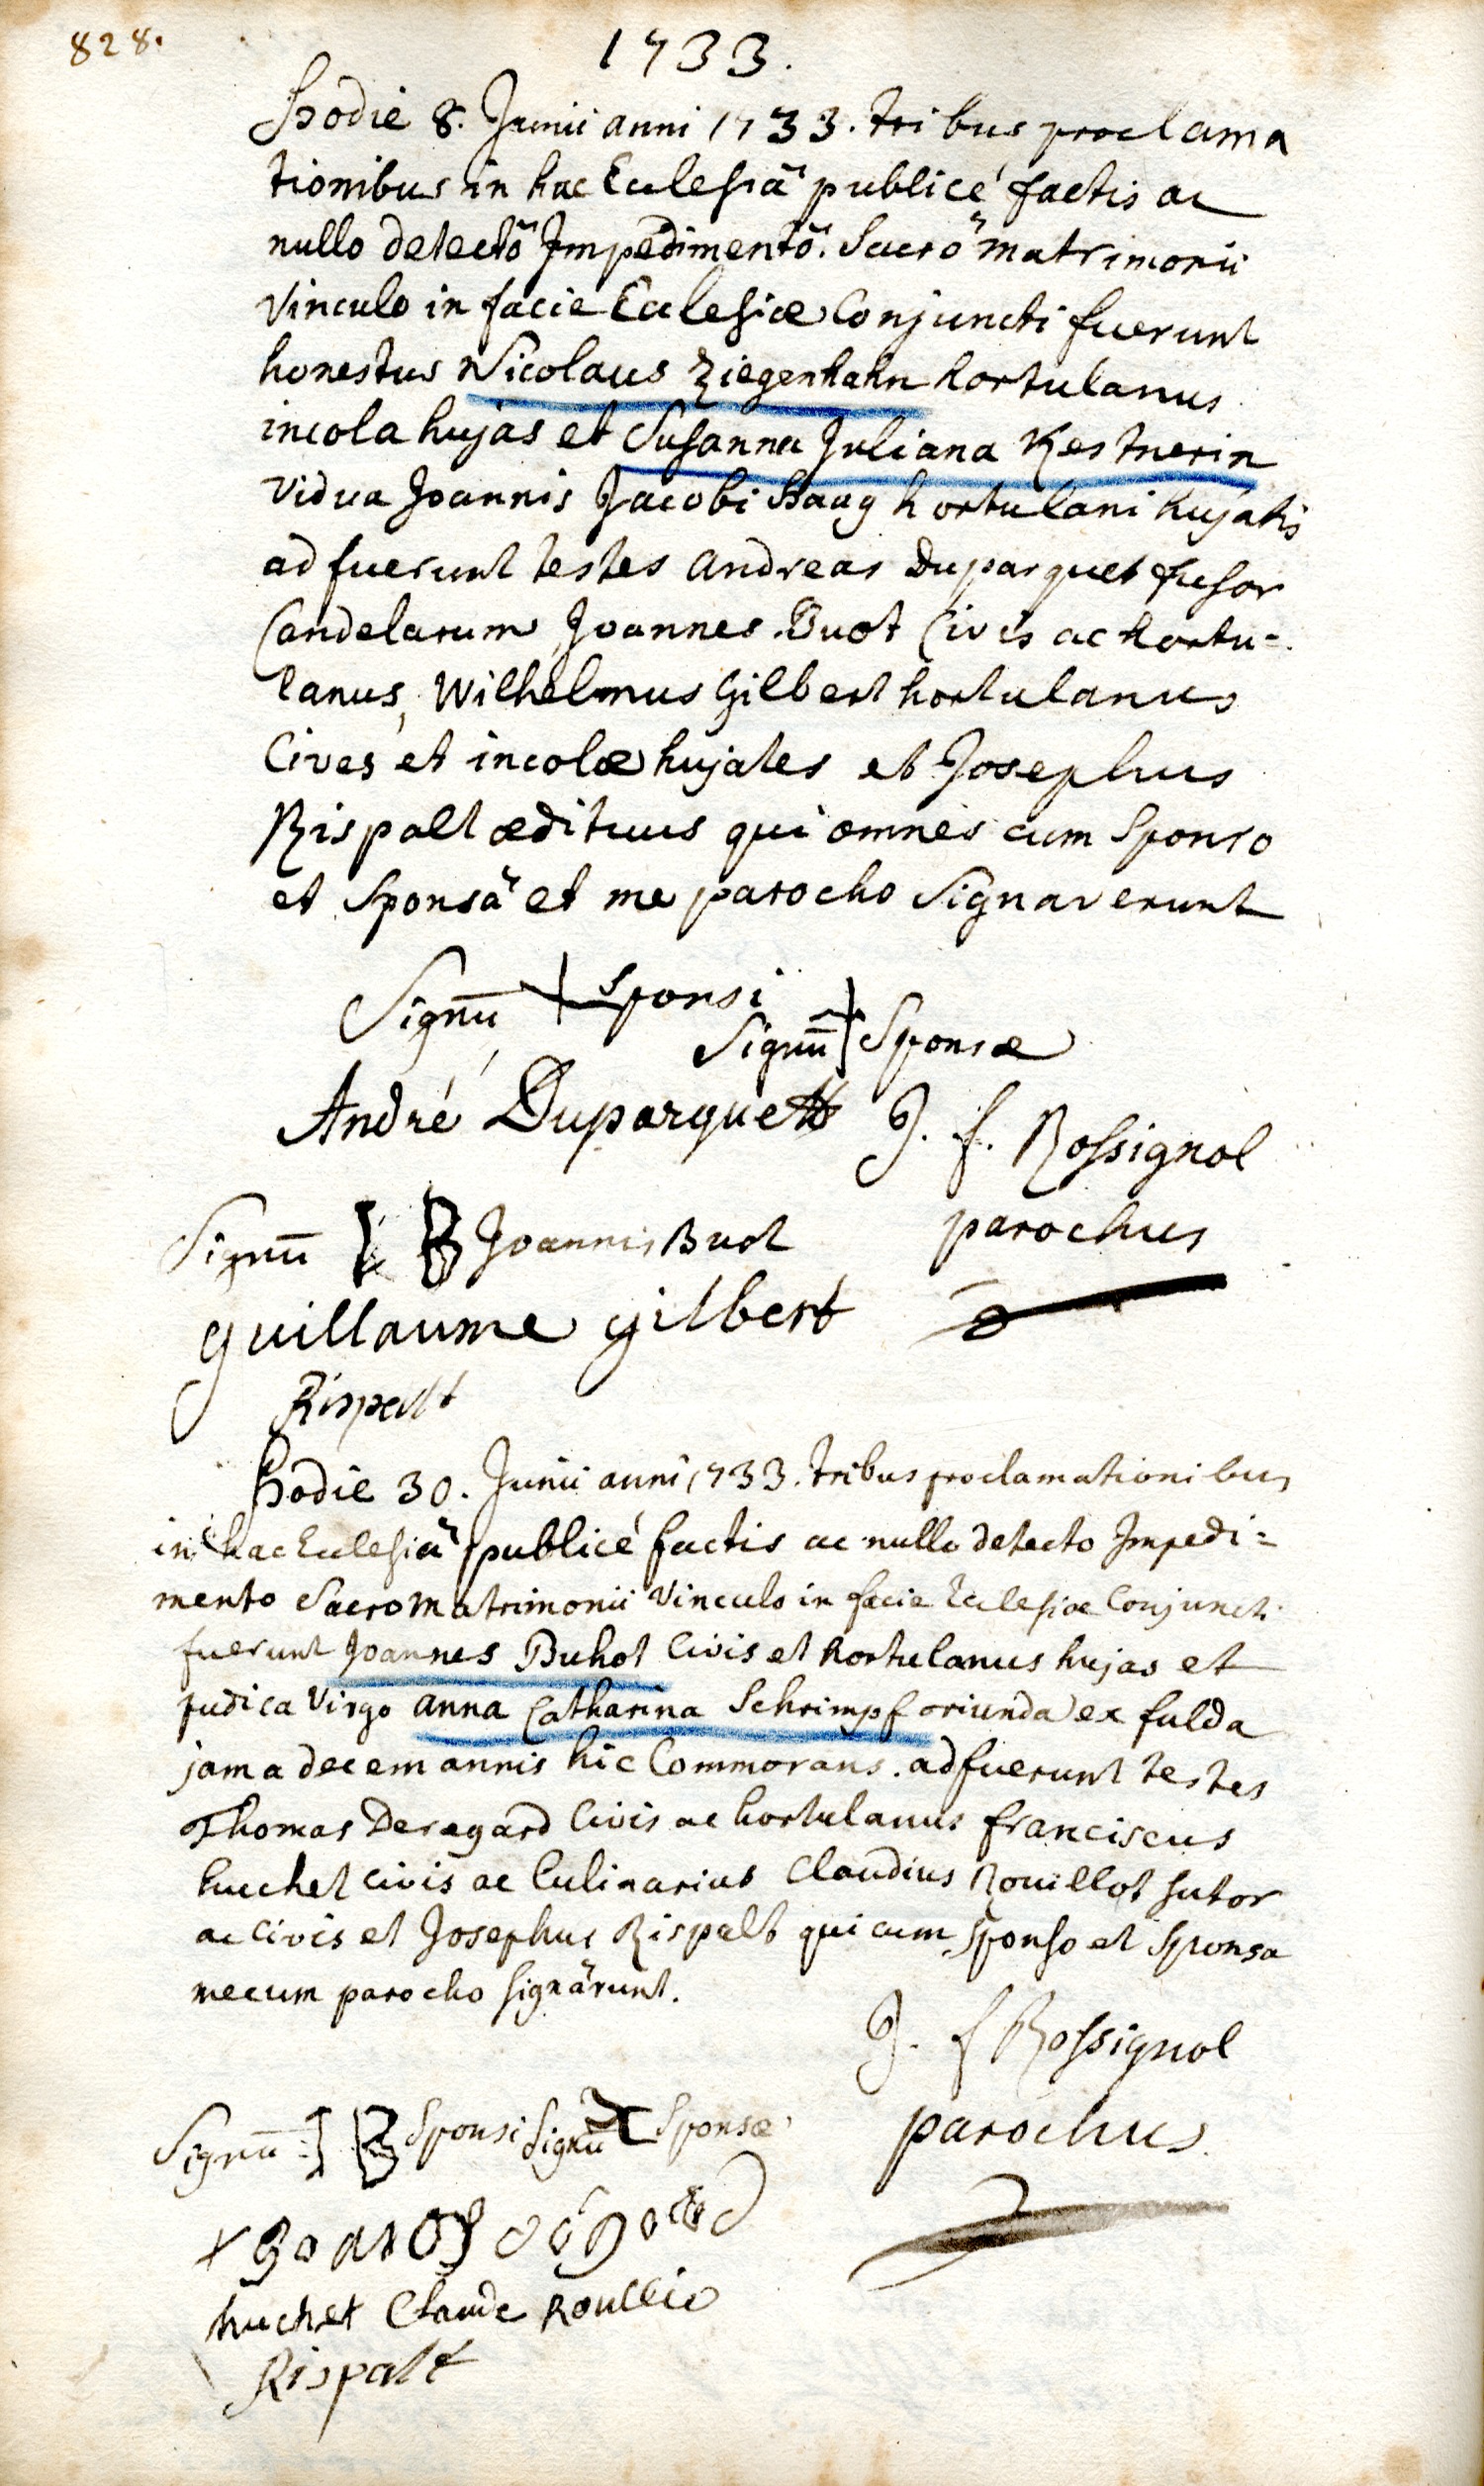 828.
1733.
Hodie 8. Junii anni 1733. tribus proclama
tionibus in hac Ecclesiâ publicé factis ac
nullo detectô Impedimentô. Sacrô matrimonii
Vinculo in facie Ecclesiæ Conjuncti fuerunt
honestus Nicolaus Ziegenhahn hortulanus
incola hujas et Susanna Juliana Kestnerin
Vidua Joannis Jacobi Haag hortulani hujatis
adfuerunt testes Andreas Duparquet fusor
Candelarum, Joannes Buot Civis ac hortu=
lanus, Wilhelmus Gilbert hortulanus
Cives et incolæ hujates et Josephus
Rispalt ædituus qui omnes cum Sponso
et Sponsâ et me parocho Signaverunt
Signū + Sponsi
Signū + Sponsæ
André Duparquett J. f. Rossignol
parochus
Signū B Joannis Buot
guillaume gilbert
Rispalt
Hodie 30. Junii anni 1733. tribus proclamationibus
in hac Ecclesiâ publicé factis ac nullo detecto Impedi=
mento Sacro Matrimonii Vinculo in facie Ecclesiæ Conjuncti
fuerunt Joannes Buhot Civis et hortulanus hujas et
pudica Virgo Anna Catharina Schrimpf oriunda ex fulda
jam a decem annis hic Commorans. adfuerunt testes
Thomas Deragard Civis ac hortulanus franciscus
huchet civis ac Culinarius Claudius Rouillot sutor
ac Civis et Josephus Rispalt qui cum Sponso et Sponsa
mecum parocho signârunt.
J. f Rossignol
parochus
Signū B Sponsi Signū X Sponsæ
huchet Claude Roullio
Rispalt